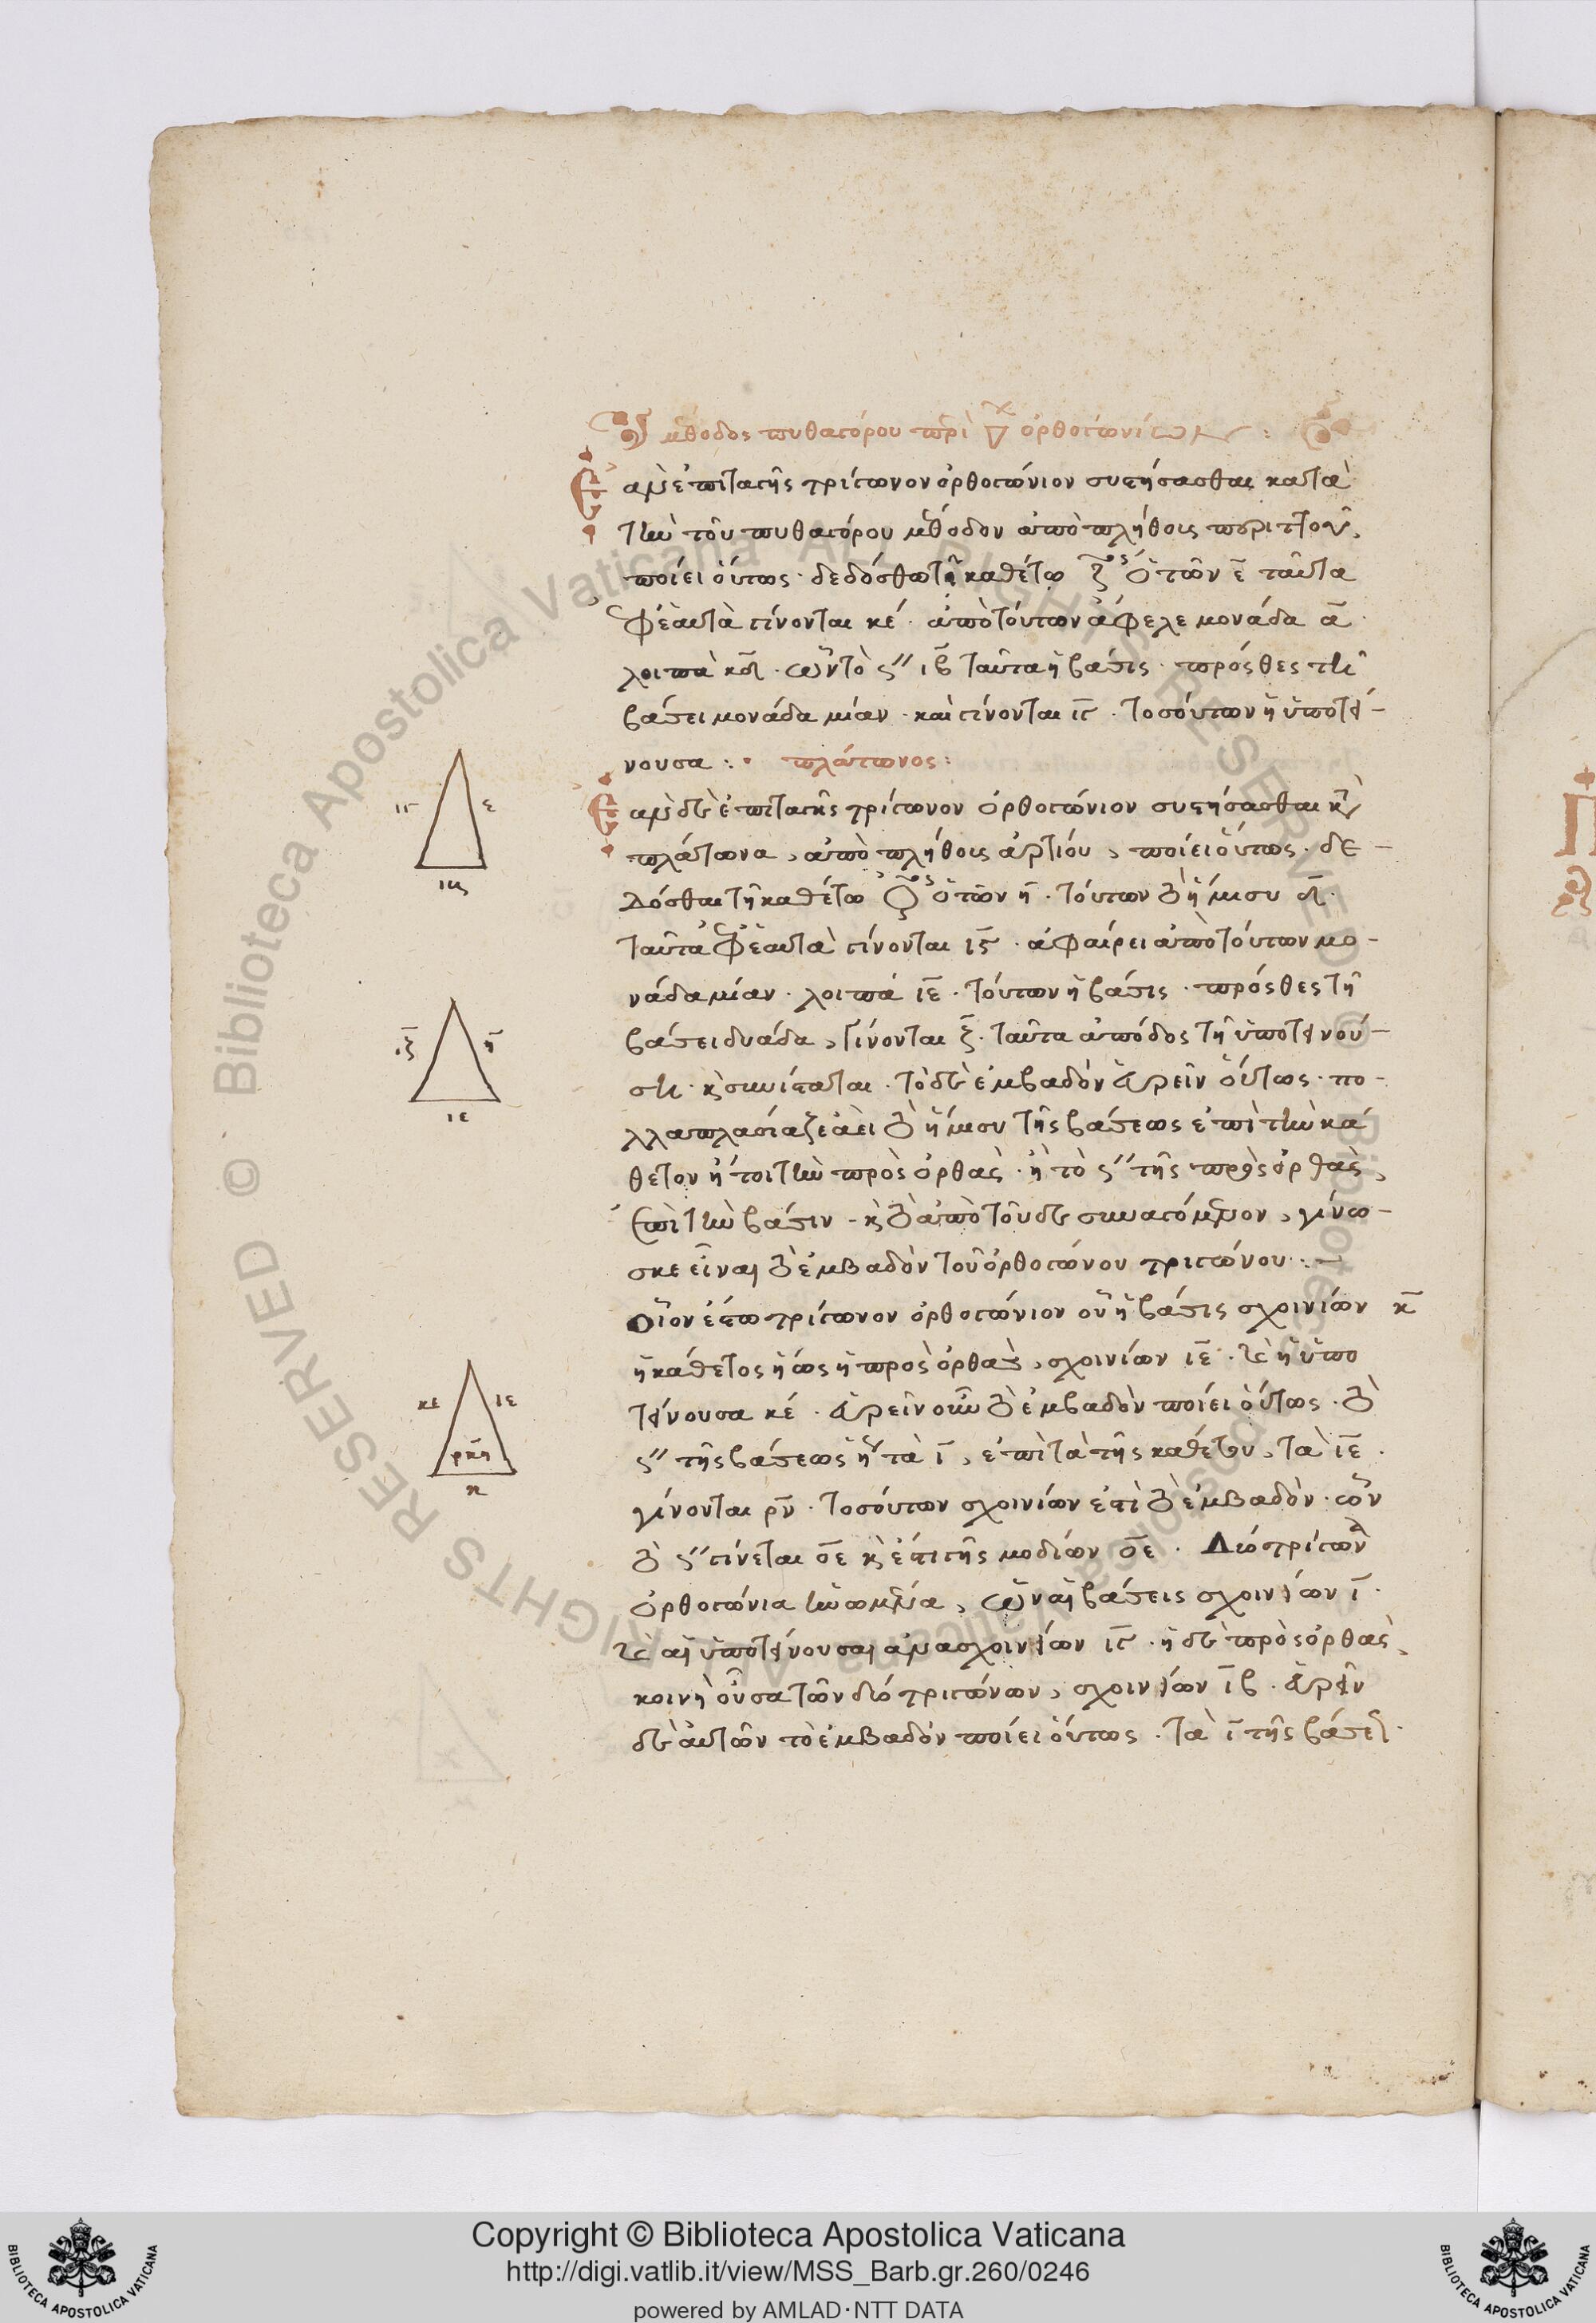 μέθοδος πυθαγόρου περὶ ὀρθογωνίων :
Ἐὰν ἐπιταγῆς τρίγωνον ὀρθογώνιον συστήσασθαι κατὰ
τὴν τοῦ πυθαγόρου μέθοδον ἀπὸ πλήθους περιττοῦ,
ποίει οὕτως · δεδόσθω τῇ καθέτῳ ὁ τῶν ε̄ ταῦτα
ἐφ ἑαυτὰ γίνονται κέ · ἀπὸ τούτων ἄφελε μονάδα ᾱ ·
λοιπὰ κδ · ὧν τὸ ςʺ ιβ ταῦτα ἡ βάσις · πρόσθες τῇ
βάσει μονάδα μίαν · καὶ γίνονται ιγ · τοσούτων ἡ ὑποτεί-
νουσα :· πλάτωνος :
Ἐὰν δὲ ἐπιταγῇς τρίγωνον ὀρθογώνιον συστήσασθαι κατὰ
πλάτωνα, ἀπὸ πλήθους ἀρτίου, ποίει οὕτως · δε-
δόσθαι τῇ καθέτῳ ὁ τῶν η̄ · τούτων τὸ ἥμισυ δ ·
ταῦτα ἐφ ἑαυτὰ γίνονται ις · ἀφαίρει ἀπὸ τούτων μο-
νάδα μίαν · λοιπά ιε · τούτων ἡ βάσις · πρόσθες τῇ
βάσει δυάδα, γίνονται ξ · ταῦτα ἀπόδος τῇ ὑποτεινού-
σῃ · καὶ συνίσταται · τὸ δὲ ἐμβαδὸν εὑρεῖν οὕτως · πο-
λλαπλασίαζε ἀεὶ τὸ ἥμισυ τῆς βάσεως ἐπὶ τὴν κά
θετον ἤτοι τὴν πρὸς ὀρθὰς · ἢ τὸ ςʺ τῆς πρὸς ὀρθὰς,
ἐπὶ τὴν βάσιν - καὶ τὸ ἀπὸ τοῦδε συναγόμενον, γίνω-
σκε εἶναι τὸ ἐμβαδὸν τοῦ ὀρθογώνου τριγώνου :-
οἷον ἔστω τρίγωνον ὀρθογώνιον οὗ ἡ βάσις σχοινίων κ̄
ἡ κάθετος ἡ ὡς ἡ πρὸς ὀρθὰς, σχοινίων ιε · καὶ ἡ ὑπο
τείνουσα κέ · εὑρεῖν οὖν τὸ ἐμβαδὸν ποίει οὕτως · τὸ
ςʺ τῆς βάσεως ἤτοι τὰ ῑ, ἐπὶ τὰ τῆς καθέτου, τὰ ιε ·
γίνονται ρν · τοσούτων σχοινίων ἐστὶ τὸ ἐμβαδὸν · ὧν
τὸ ςʺ γίνεται οε καὶ ἔστι γῆς μοδίων οε · Δύο τρίγωνα
ὀρθογώνια ἡνωμένα, ὧν αἱ βάσεις σχοινίων ῑ ·
καὶ αἱ ὑποτείνουσαι ἀμα σχοινίων ιγ · ἡ δὲ πρὸς ὀρθὰς,
κοινὴ οὖσα τῶν δύο τριγώνων, σχοινίων ιβ · εὑρεῖν
δὲ αὐτῶν τὸ ἐμβαδόν ποίει οὕτως · τὰ ῑ τῆς βάσεως ·
ιγ ε
ιζ η̄
ιε
κε ιε
κ
Copyright © Biblioteca Apostolica Vaticana
http://digi.vatlib.it/view/MSS_Barb.gr.260/0246
powered by AMLAD·NTT DATA
BIBLIOTECA APOSTOLICA VATICANA
BIBLIOTECA APOSTOLICA VATICANA